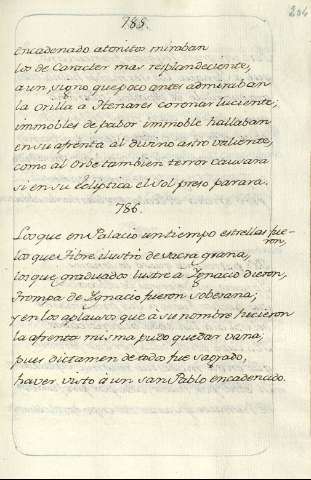 204
785.
encadenado atonitos miraban
los de Caracter mas resplandeciente,
a un signo que poco antes admiraban
la orilla à Henares coronar luciente;
immobles de pabor immoble hallaban
en su afrenta al divino astro valiente,
como al Orbe tambien terror causara
si en su Ecliptica el Sol preso parara.
786.
Los que en Palacio un tiempo estrellas fueron,
los que Tibre ilustrò de sacra grana,
los que, graduados lustre à Ignacio dieron,
trompa de Ignacio fueron soberana;
y en los aplausos que à su nombre hicieron
la afrenta misma pudo quedar vana;
pues dictamen de todos fue sagrado,
haver visto à un san Pablo encadenado.